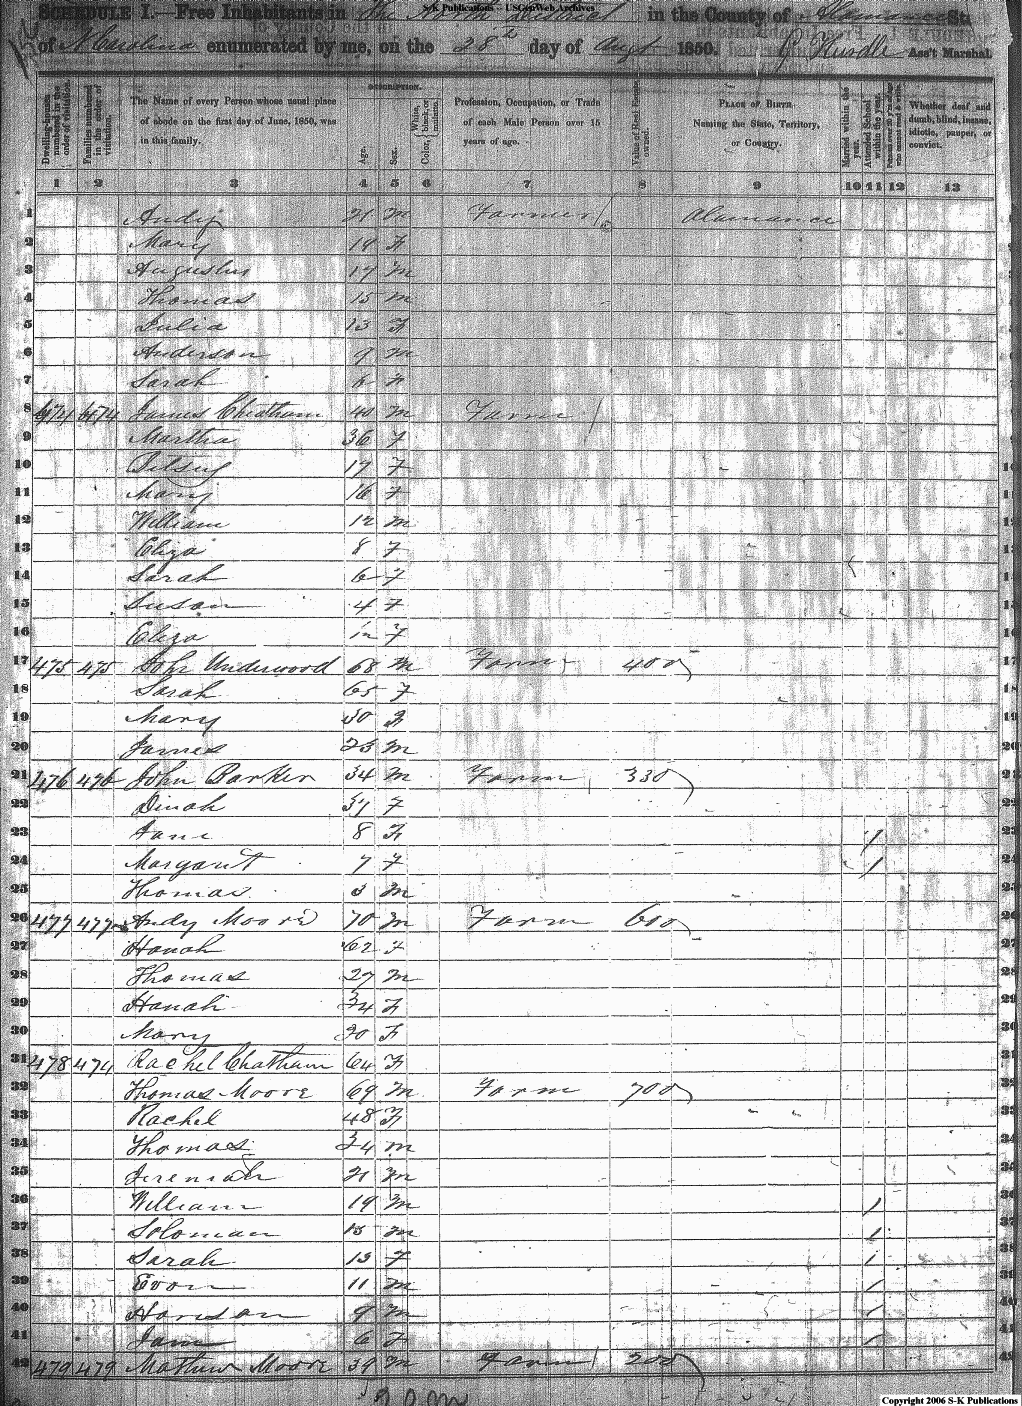 S-K Publications - USGenWeb Archives
SCHEDULE I.—Free Inhabitants in the North District in the County of Alamance State
of N Carolina enumerated by me, on the 28 day of Augt 1850. G Hurdle Ass't Marshal.
DESCRIPTION.
Dwelling-houses numbered in the order of visitation. Families numbered in the order of visitation. The Name of every Person whose usual place of abode on the first day of June, 1850, was in this family. Age. Sex. Color, White, black, or mulatto. Profession, Occupation, or Trade of each Male Person over 15 years of age. Value of Real Estate owned. PLACE OF BIRTH. Naming the State, Territory, or Country. Married within the year. Attended School within the year. Persons over 20 y'rs of age who cannot read & write. Whether deaf and dumb, blind, insane, idiotic, pauper, or convict.
1 2 3 4 5 6 7 8 9 10 11 12 13
1 Andy 21 M Farmer Alamance
2 Mary 19 F
3 Augustus 17 M
4 Thomas 15 M
5 Julia 13 F
6 Anderson 9 M
7 Sarah F
8 474 474 James Cheatham 40 M Farm
9 Martha 36 F
10 Betsey 17 F
11 Mary 16 F
12 William 12 M
13 Eliza 8 F
14 Sarah 6 F
15 Susan 4 F
16 Eliza F
17 475 475 John Underwood 68 M Farm 400
18 Sarah 65 F
19 Mary 30 F
20 James 23 M
21 476 476 John Barker 34 M Farm 330
22 Dinah 37 F
23 Jane 8 F 1
24 Margaret 7 F 1
25 Thomas 3 M
26 477 477 Andy Moore 70 M Farm 600
27 Hanah 62 F
28 Thomas 27 M
29 Hanah 34 F
30 Mary 30 F
31 478 474 Rachel Chatham 64 F
32 Thomas Moore 69 M Farm 700
33 Rachel 48 F
34 Thomas 24 M
35 Jeremiah 21 M
36 William 19 M 1
37 Soloman 15 M 1
38 Sarah 13 F 1
39 Evon 11 M 1
40 Harrison 9 M 1
41 Jane 6 F 1
42 479 479 Mathew Moore 39 M Farm 200
Copyright 2006 S-K Publications